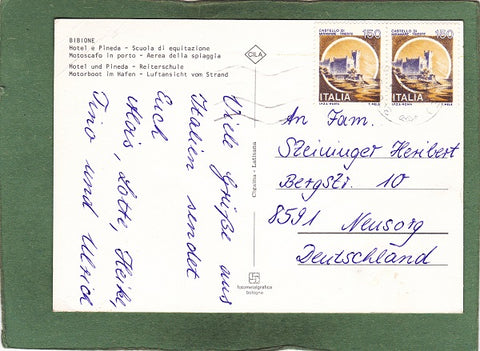 BIBIONE
Hotel e Pineda - Scuola di equitazione
Motoscafo in porto - Aerea della spiaggia
Hotel und Pineda - Reiterschule
Motorboot im Hafen - Luftansicht vom Strand
CILA
CASTELLO DI
MIRAMARE TRIESTE
150
ITALIA
I.P.Z.S. ROMA
CASTELLO DI
MIRAMARE TRIESTE
150
ITALIA
I.P.Z.S. ROMA
Viele Grüße aus
Italien sendet
Euch
Alois, Lotte, Heike,
Tino und Ulrich
fotometalgrafica
bologna
An Fam.
Steininger Heribert
Bergstr. 10
8591 Neusorg
Deutschland